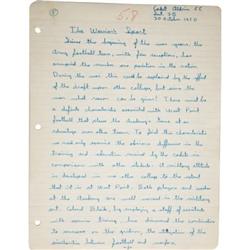 5.8
The Warrior's Sport
Since the beginning of the war years, the
Army football team, with few exceptions, has
among the number one position in the nation.
During the war this could be explained by the effect
of the draft upon other colleges, but since the
war what reason can be given? There must be
a definite characteristic associated with West Point
football that places the Academy's team at an
advantage over other teams. To find the characteristic
we need only examine the obvious difference in the
training and education received by the cadets in
comparison with other students. A military attitude
is developed in no other college to the extent
that it is at West Point. Both players and coaches
at the Academy are well versed in the military
art. Colonel Blaik, by employing a staff of assistants
with service training, has showed the continuities
to success on the gridiron, the utilization of the
similarities between football and warfare.